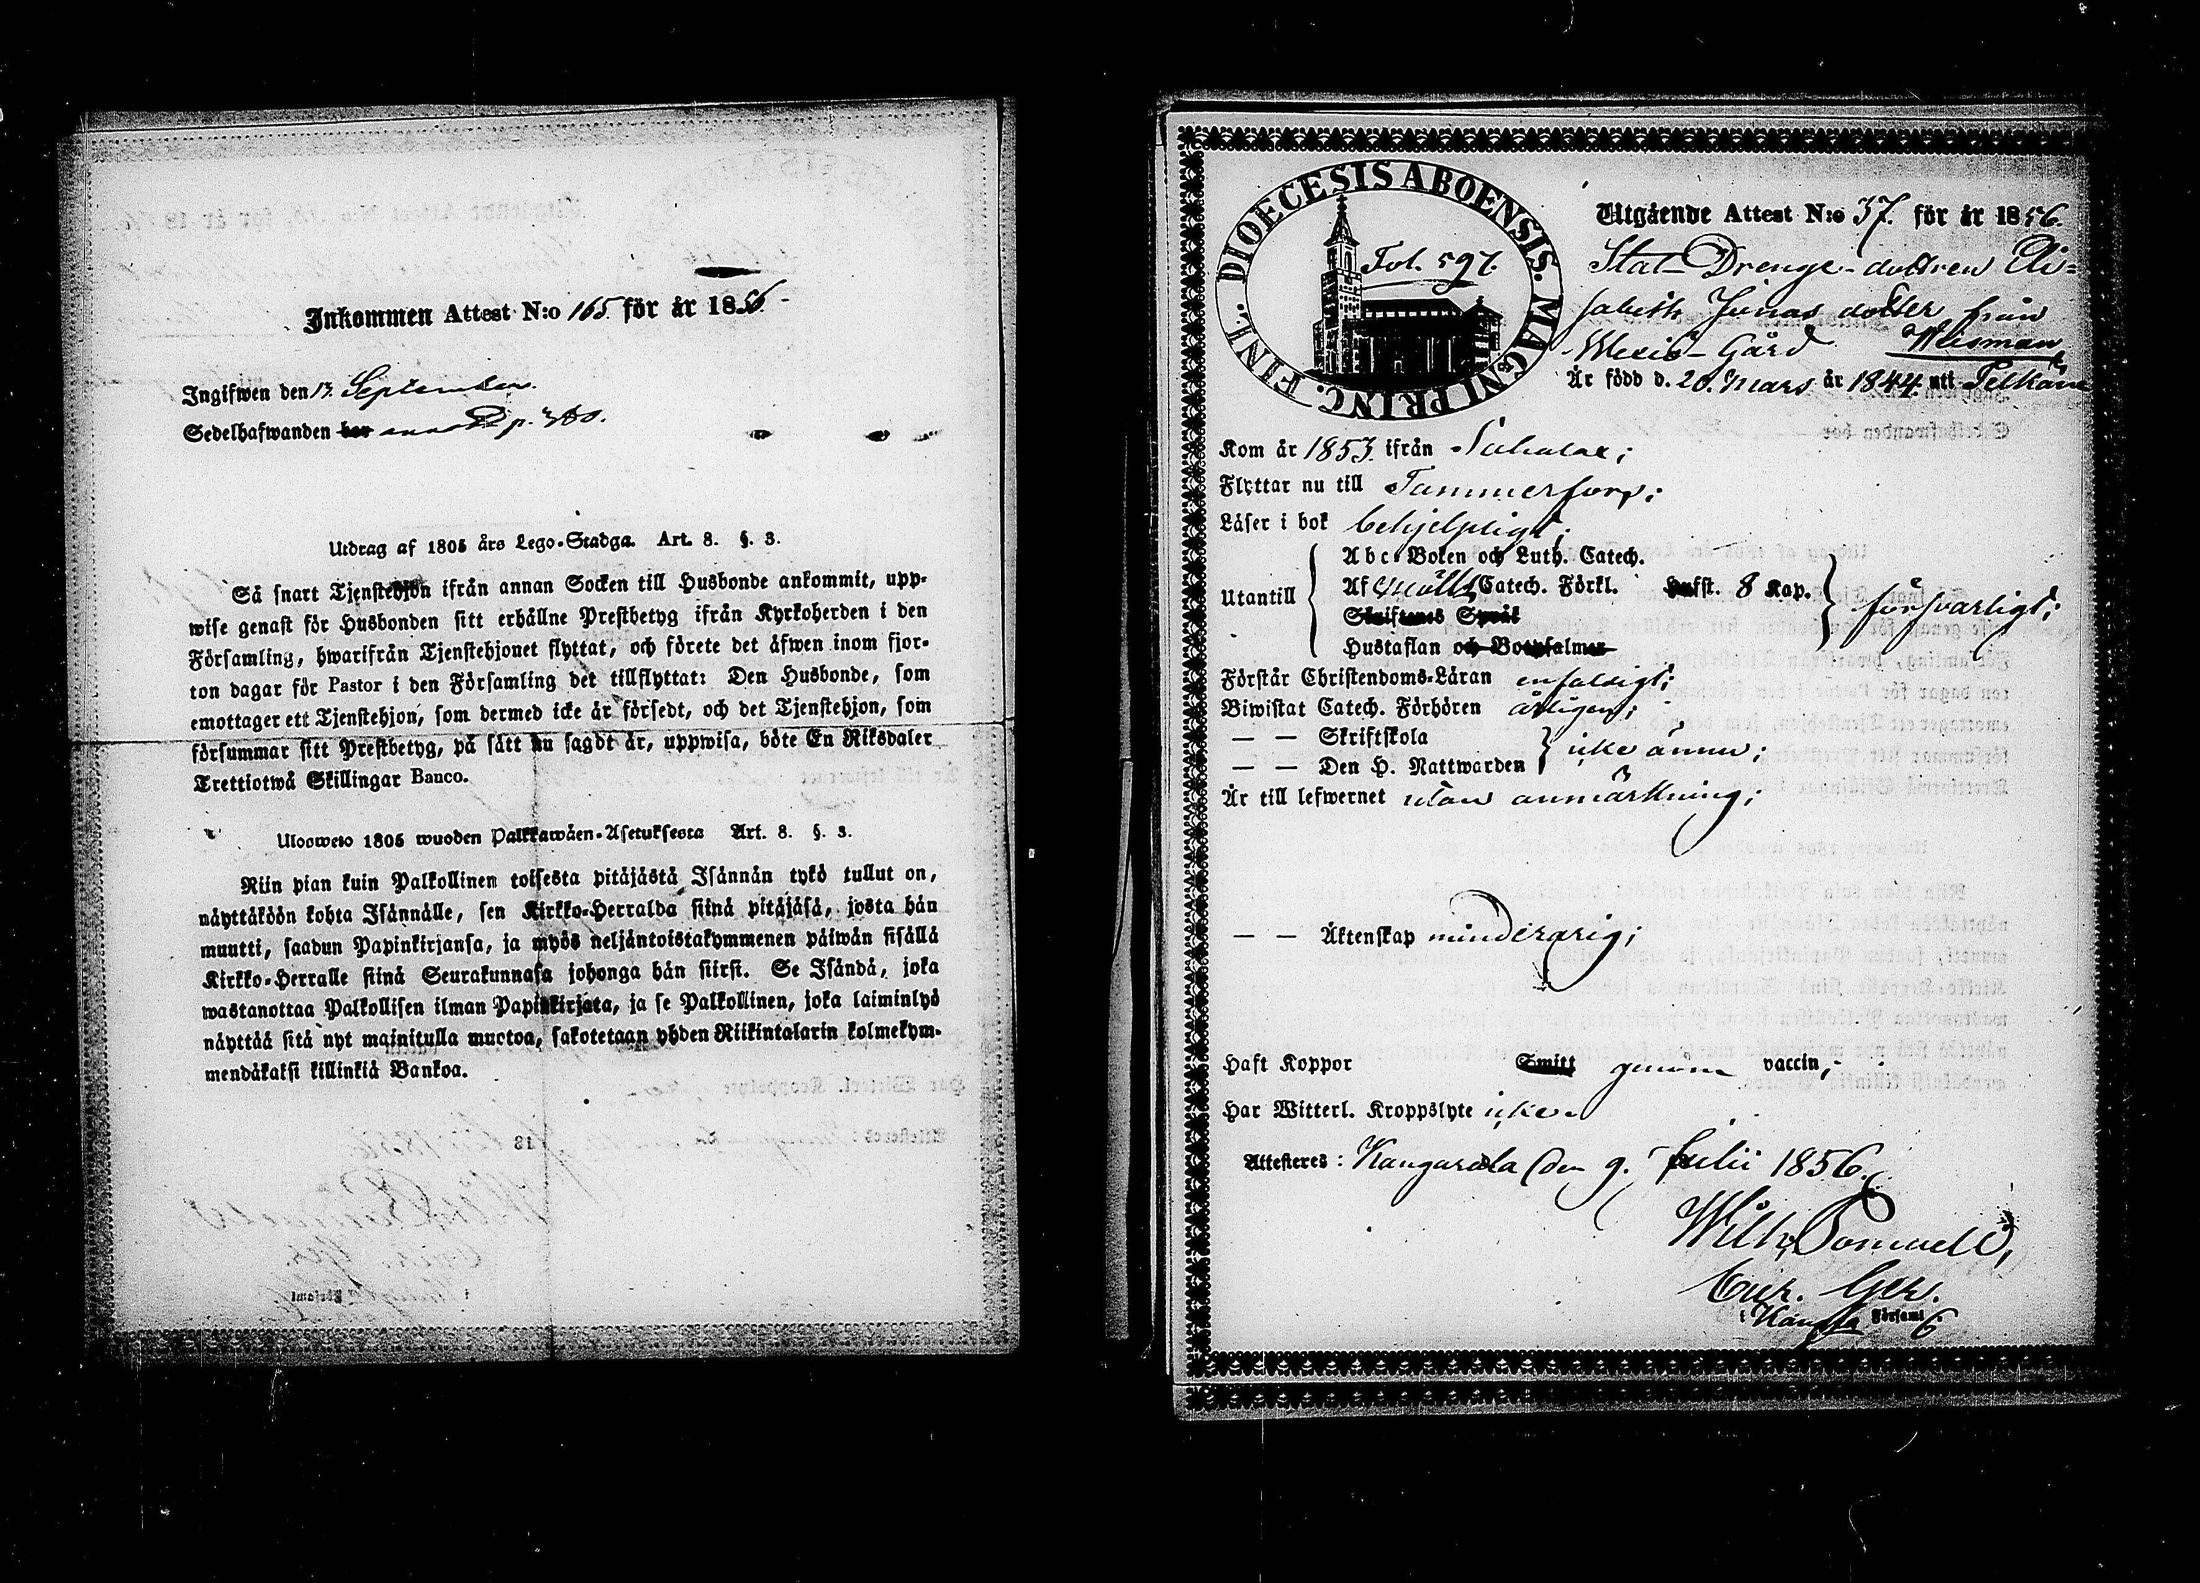 Inkommen Attest N:o 165. för år 1856.
Ingifwen den 13. September.
Sedelhafwanden bor p. 380.
Utdrag af 1805 års Lego-Stadga. Art. 8. §. 3.
Så snart Tjenstehjon ifrån annan Socken till Husbonde ankommit, upp-
wise genast för Husbonden sitt erhållne Prestbetyg ifrån Kyrkoherden i den
Församling, hwarifrån Tjenstehjonet flyttat, och förete det äfwen inom fjor-
ton dagar för Pastor i den Församling det tillflyttat: Den Husbonde, som
emottager ett Tjenstehjon, som dermed icke är försedt, och det Tjenstehjon, som
försummar sitt Prestbetyg, på sätt nu sagdt är, uppwisa, böte En Riksdaler
Trettiotwå Skillingar Banco.
Ulosweto 1805 wuoden Palkkawäen-Asetuksesta Art. 8. §. 3.
Niin pian kuin Palkollinen toisesta pitäjästä Isännän tykö tullut on,
näyttäköön kohta Isännälle, sen Kirkko-Herralda siinä pitäjäsä, josta hän
muutti, saadun Papinkirjansa, ja myös neljäntoistakymmenen päiwän sisällä
Kirkko-Herralle siinä Seurakunnasa johonga hän siirsi. Se Isändä, joka
wastanottaa Palkollisen ilman Papinkirjata, ja se Palkollinen, joka laiminlyö
näyttää sitä nyt mainitulla muotoa, sakotetaan yhden Riikintalarin kolmekym-
mendäkaksi killinkiä Bankoa.
DIOECESIS ABOENSIS. MAGNI PRINC. FINL.
Fol. 597.
Utgående Attest N:o 37. för år 1856.
Stat-Drenge-dottren Eli-
sabeth Jonas dotter från
Wexis-Gård
Är född d. 20. Mars år 1844. uti Pelkäne
Kom år 1853. ifrån Sahalax;
Flyttar nu till Tammerfors;
Läser i bok behjelpligt;
Utantill
Abc-Boken och Luth. Catech.
Af Catech. Förkl. Hufst. 8 Kap.
Skriftenes Språk
Hustaflan och Botpsalmer
försvarligt;
Förstår Christendoms-Läran enfaldigt;
Biwistat Catech. Förhören årligen;
— — Skriftskola
— — Den H. Nattwarden
icke ännu;
Är till lefwernet utan anmärkning;
— — Äktenskap minderårig;
Haft Koppor Smitt genom vaccin,
Har Witterl. Kroppslyte icke.
Attesteres: Kangasala den 9. Julii 1856.
Wilh.
i Församl.